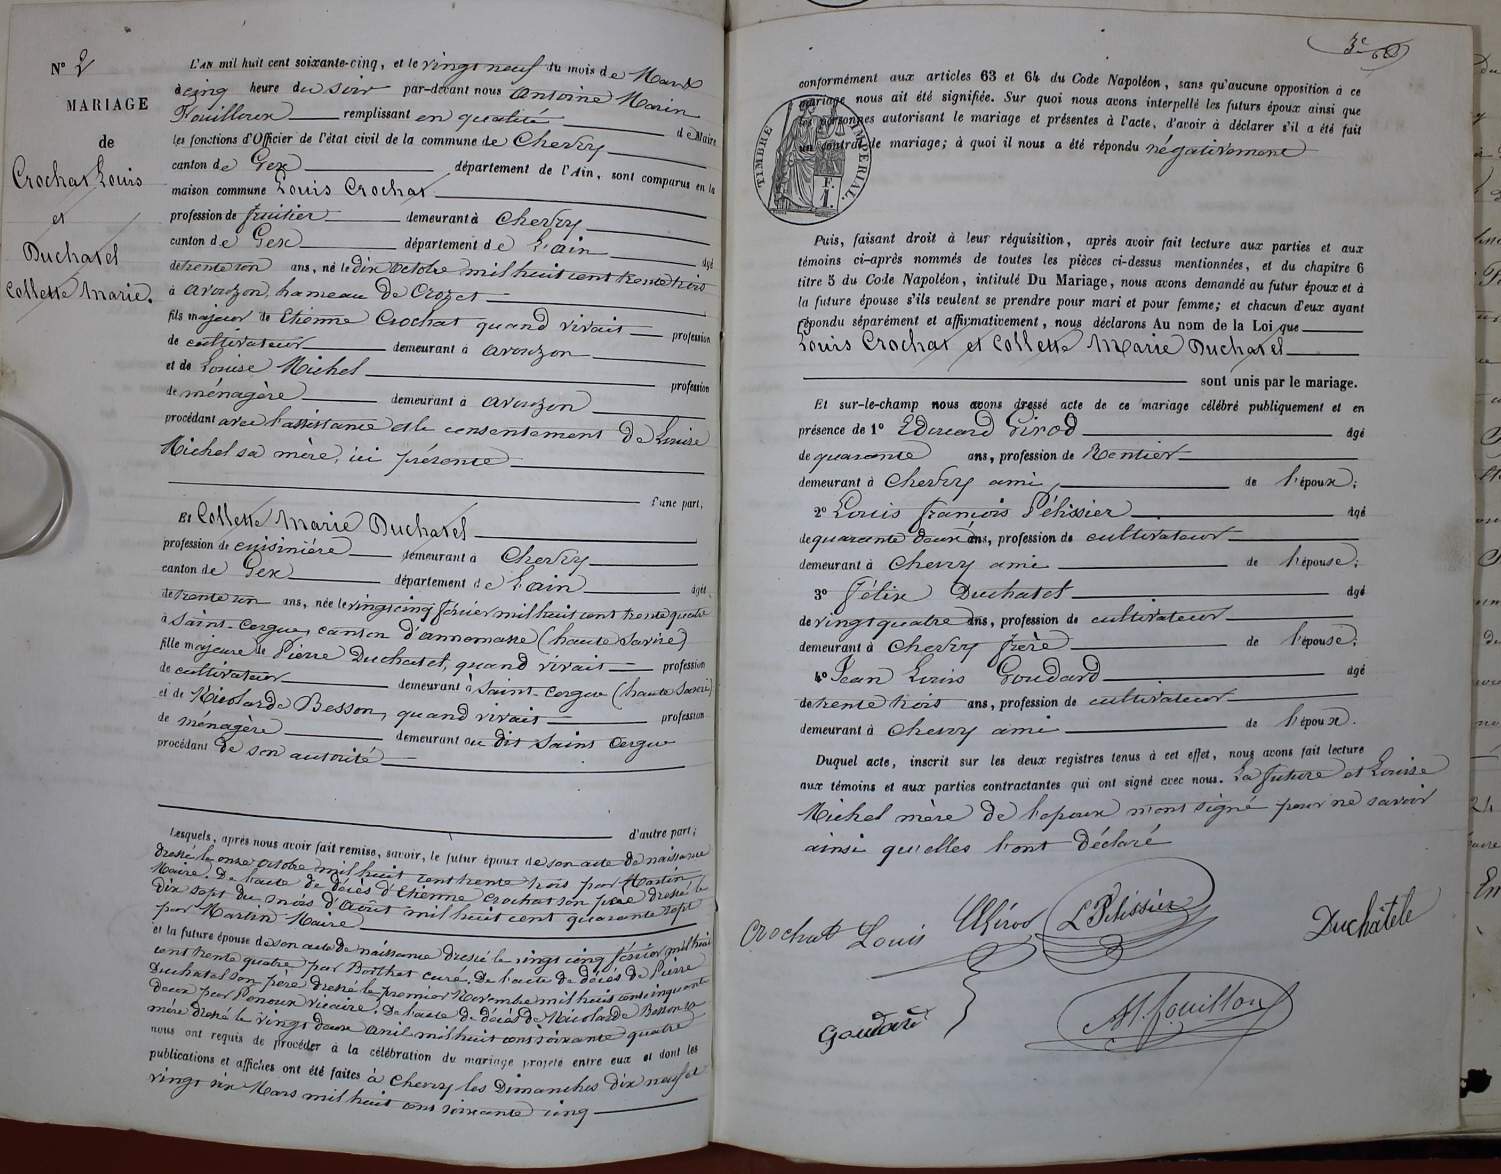 N° 2
MARIAGE
de
Crochat Louis
et
Duchatel
Collette Marie.
L'AN mil huit cent soixante-cinq, et le vingt neuf du mois de Mars
à cinq heure du soir par-devant nous Antoine Marin
Fouilloux remplissant en qualité de Maire
les fonctions d'Officier de l'état civil de la commune de Chevry
canton de Gex département de l'Ain, sont comparus en la
maison commune Louis Crochat
profession de fruitier demeurant à Chevry
canton de Gex département de L'ain âgé
de trente un ans, né le dix octobre mil huit cent trente trois
à avouzon, hameau de Crozet
fils majeur de Etienne Crochat quand vivait profession
de cultivateur demeurant à avouzon
et de Louise Michel profession
de ménagère demeurant à avouzon
procédant avec l'assistance et le consentement de Louise
Michel sa mère, ici présente
d'une part,
Et Collette Marie Duchatel
profession de cuisinière demeurant à Chevry
canton de Gex département de L'ain âgée
de trente un ans, née le vingt cinq février mil huit cent trente quatre
à Saint-Cergue, canton d'annemasse (haute Savoie)
fille majeure de Pierre Duchatel, quand vivait profession
de cultivateur demeurant à Saint-Cergue (haute Savoie)
et de Nicolarde Besson, quand vivait profession
de ménagère demeurant au dit Saint Cergue
procédant de son autorité
d'autre part;
Lesquels, après nous avoir fait remise, savoir, le futur époux de son acte de naissance
dressé le onze octobre mil huit cent trente trois par Martin,
Maire. De l'acte de décès d'Etienne Crochat son père dressé le
dix sept du mois d'Août mil huit cent quarante sept
par Martin Maire
et la future épouse de son acte de naissance dressé le vingt cinq février mil huit
cent trente quatre par Boithet curé. De l'acte de décès de Pierre
Duchatel son père dressé le premier Novembre mil huit cent cinquante
deux par Penoux vicaire. De l'acte de décès de Nicolarde Besson sa
mère dressé le vingt deux avril mil huit cent soixante quatre
nous ont requis de procéder à la célébration du mariage projeté entre eux et dont les
publications et affiches ont été faites à Chevry les Dimanches dix neuf et
vingt six Mars mil huit cent soixante cinq
3e
conformément aux articles 63 et 64 du Code Napoléon, sans qu'aucune opposition à ce
mariage nous ait été signifiée. Sur quoi nous avons interpellé les futurs époux ainsi que
les personnes autorisant le mariage et présentes à l'acte, d'avoir à déclarer s'il a été fait
un contrat de mariage; à quoi il nous a été répondu négativement
TIMBRE IMPÉRIAL.
F.
1.
Puis, faisant droit à leur réquisition, après avoir fait lecture aux parties et aux
témoins ci-après nommés de toutes les pièces ci-dessus mentionnées, et du chapitre 6
titre 5 du Code Napoléon, intitulé Du Mariage, nous avons demandé au futur époux et à
la future épouse s'ils veulent se prendre pour mari et pour femme; et chacun d'eux ayant
répondu séparément et affirmativement, nous déclarons Au nom de la Loi que
Louis Crochat et Collette Marie Duchatel
sont unis par le mariage.
Et sur-le-champ nous avons dressé acte de ce mariage célébré publiquement et en
présence de 1° Edouard Girod âgé
de quarante ans, profession de Rentier
demeurant à Chevry ami de l'époux;
2° Louis françois Pélissier âgé
de quarante deux ans, profession de cultivateur
demeurant à Chevry ami de l'épouse;
3° félix Duchatel âgé
de vingt quatre ans, profession de cultivateur
demeurant à Chevry frère de l'épouse;
4° Jean Louis Goudard âgé
de trente trois ans, profession de cultivateur
demeurant à Chevry ami de l'époux.
Duquel acte, inscrit sur les deux registres tenus à cet effet, nous avons fait lecture
aux témoins et aux parties contractantes qui ont signé avec nous. La future et Louise
Michel mère de l'époux n'ont signé pour ne savoir
ainsi qu'elles l'ont déclaré
Crochat Louis
EGirod
LPélissier
Duchâtele
Goudard
AM. fouilloux